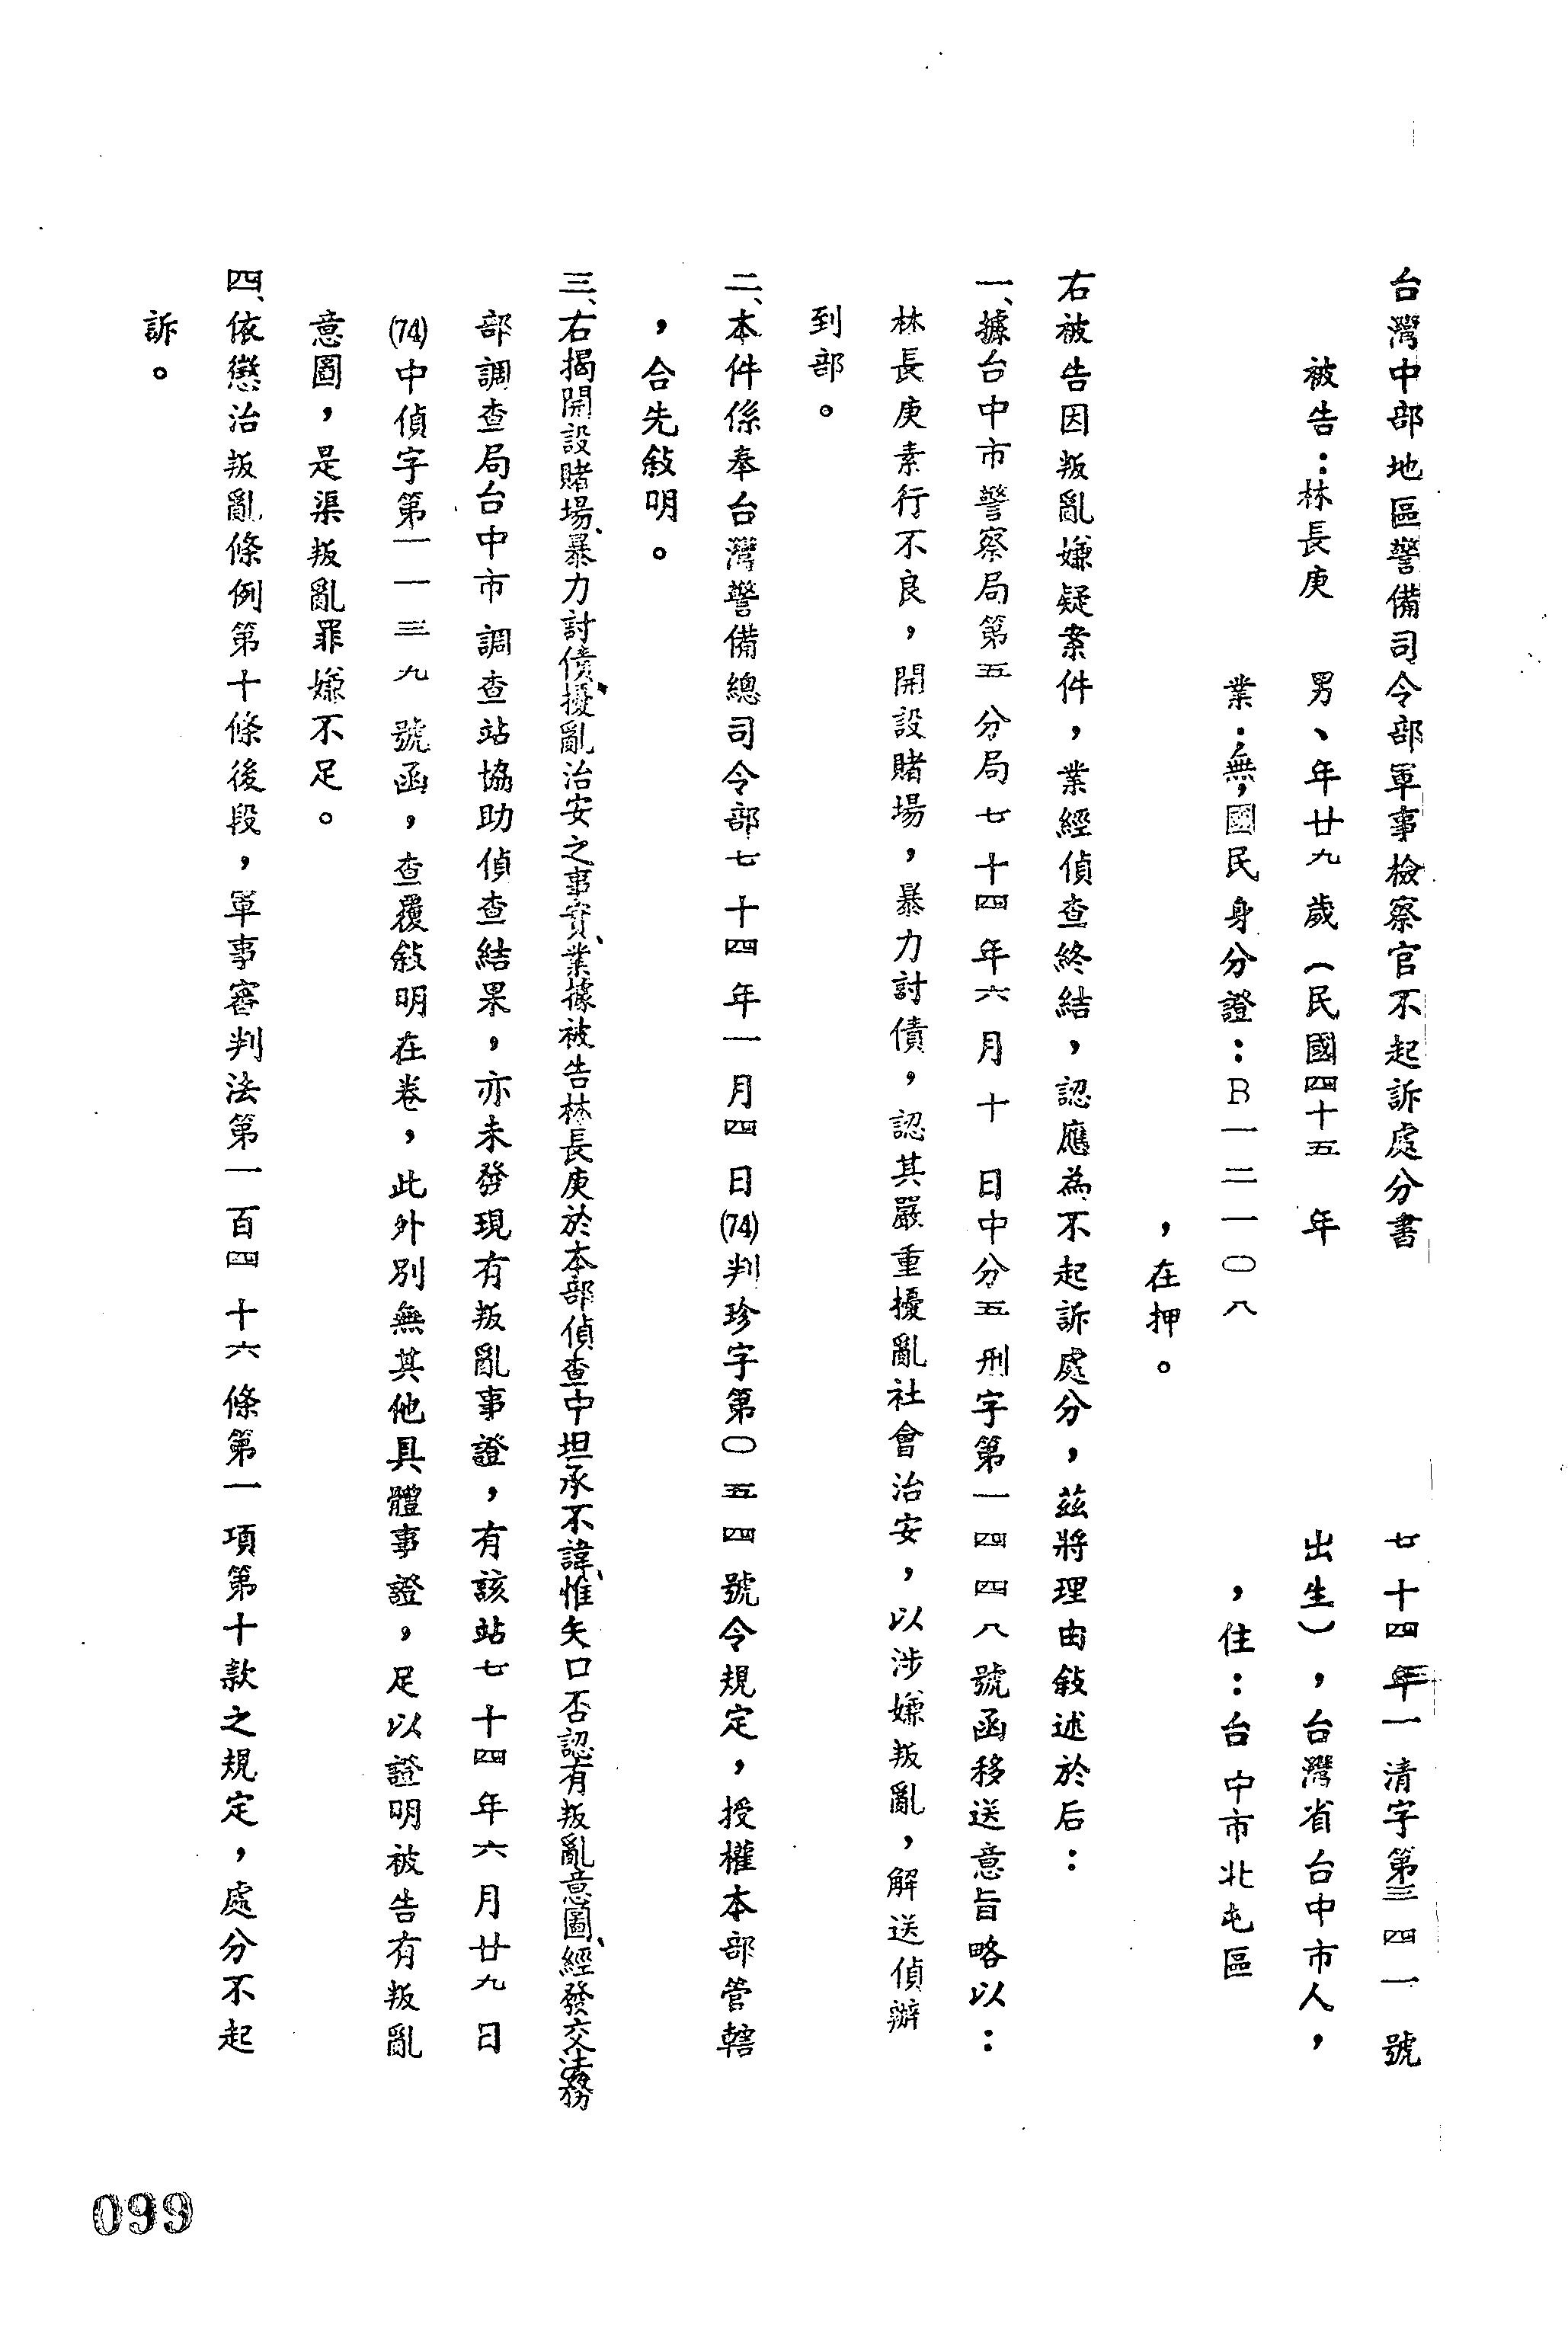 台灣中部地區警備司令部軍事檢察官不起訴處分書　七十四年一清字第三四一號
被告：林長庚　男、年廿九歲（民國四十五　年　出生），台灣省台中市人，
業：無，國民身分證：B一二一〇八　，住：台中市北屯區
，在押。
右被告因叛亂嫌疑案件，業經偵查終結，認應為不起訴處分，茲將理由敍述於后：
一、據台中市警察局第五分局七十四年六月十　日中分五刑字第一四四八號函移送意旨略以：
林長庚素行不良，開設賭場，暴力討債，認其嚴重擾亂社會治安，以涉嫌叛亂，解送偵辦
到部。
二、本件係奉台灣警備總司令部七十四年一月四日(74)判珍字第〇五四號令規定，授權本部管轄
，合先敍明。
三、右揭開設賭場、暴力討債、擾亂治安之事實、業據被告林長庚於本部偵查中坦承不諱、惟矢口否認有叛亂意圖、經發交法務
部調查局台中市調查站協助偵查結果，亦未發現有叛亂事證，有該站七十四年六月廿九日
(74)中偵字第一一三九號函，查覆敍明在卷，此外別無其他具體事證，足以證明被告有叛亂
意圖，是渠叛亂罪嫌不足。
四、依懲治叛亂條例第十條後段，軍事審判法第一百四十六條第一項第十款之規定，處分不起
訴。
099